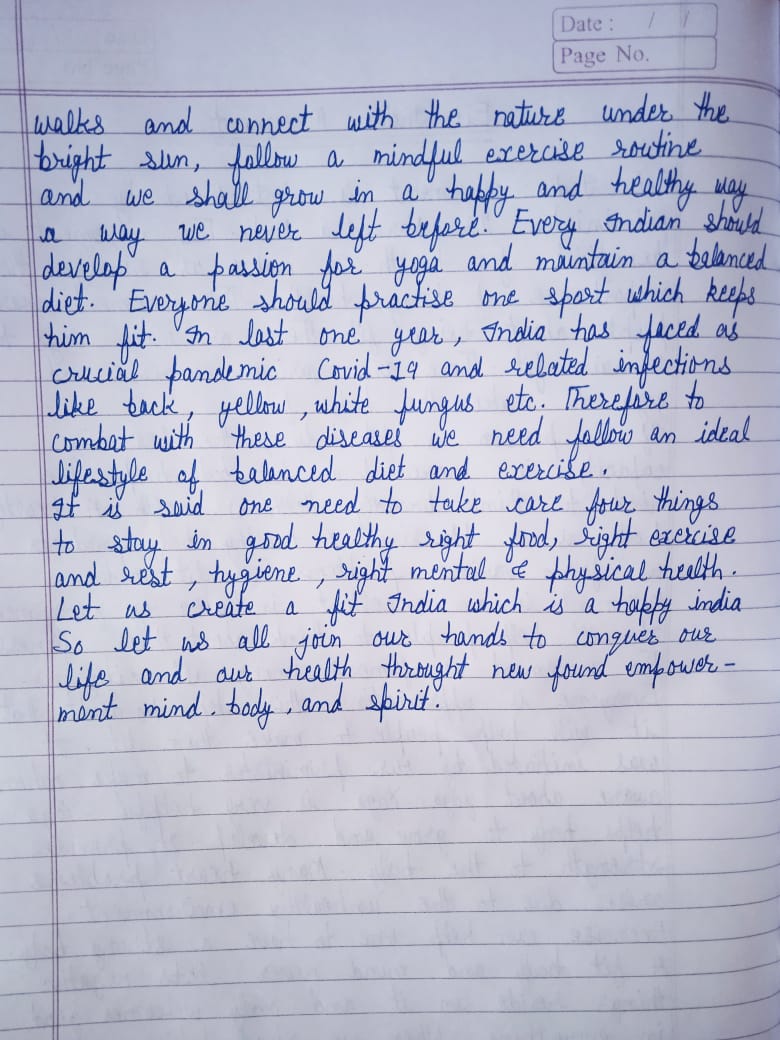 Date : / /
Page No.
walks and connect with the nature under the
bright sun, follow a mindful exercise routine
and we shall grow in a happy and healthy way
a way we never left before. Every Indian should
develop a passion for yoga and maintain a balanced
diet. Everyone should practise one sport which keeps
him fit. In last one year, India has faced as
crucial pandemic Covid-19 and related infections
like back, yellow, white fungus etc. Therefore to
combat with these diseases we need follow an ideal
lifestyle of balanced diet and exercise.
It is said one need to take care four things
to stay in good healthy right food, right exercise
and rest, hygiene, right mental & physical health.
Let us create a fit India which is a happy india
So let us all join our hands to conquer our
life and our health throught new found empower-
ment mind. body, and spirit.